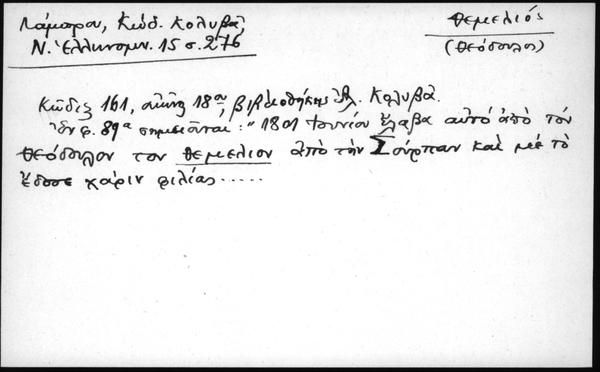 Λάμπρου, Κώδ. Κολυβᾶ
Ν. Ἑλληνομν. 15 σ. 276
Θεμελιός
(Θεόδουλος)
Κῶδιξ 161, αἰῶνος 18ου, βιβλιοθήκης Ἀλ. Κολυβᾶ.
Ἐν φ. 89α σημειοῦται: "1801 Ἰουνίου ἔλαβα αὐτό ἀπό τόν
Θεόδουλον τον Θεμελιον ἀπό τήν Σούρπην καί μέ τό
ἔδοσε χάριν φιλίας......